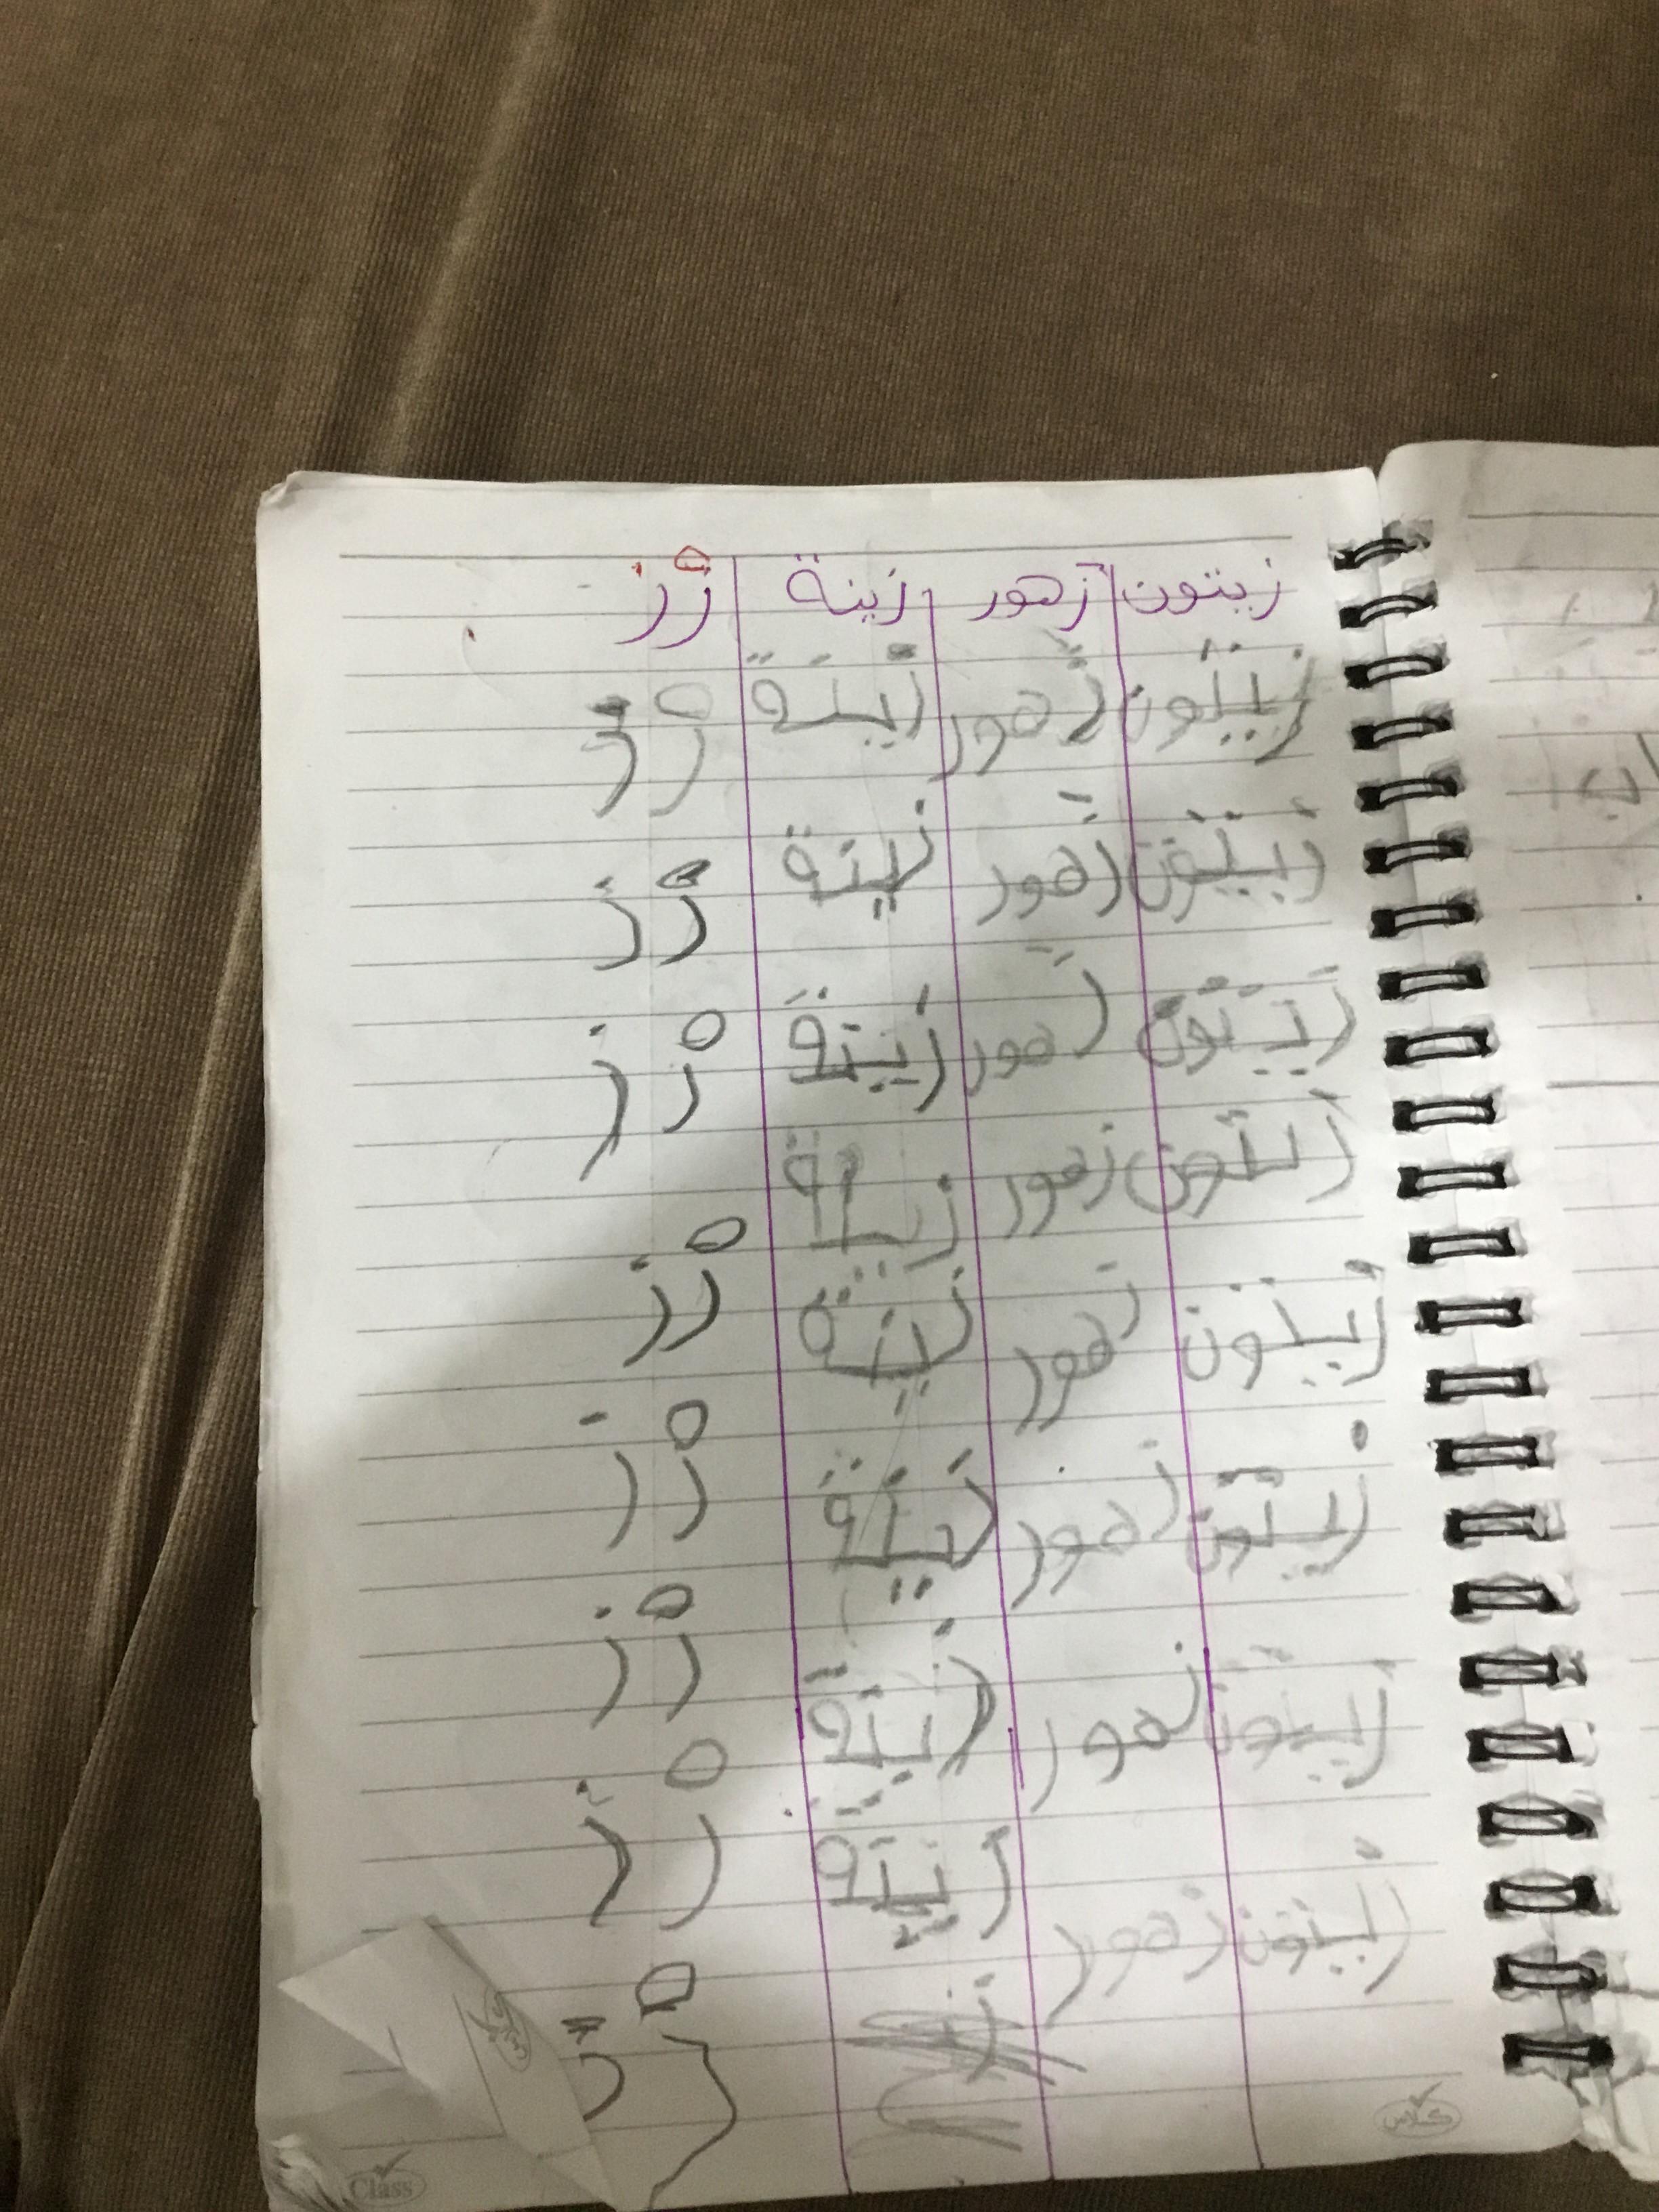 زيتون زهور زينة زْ ز
زيتون زهور زينة زْ ز
زيتون زهور زينة زْ ز
زيتون زهور زينة زْ ز
زيتون زهور زينة زْ ز
زيتون زهور زينة زْ ز
زيتون زهور زينة زْ ز
زيتون زهور زينة زْ ز
زيتون زهور زينة زْ ز
ز
كلاس
Class